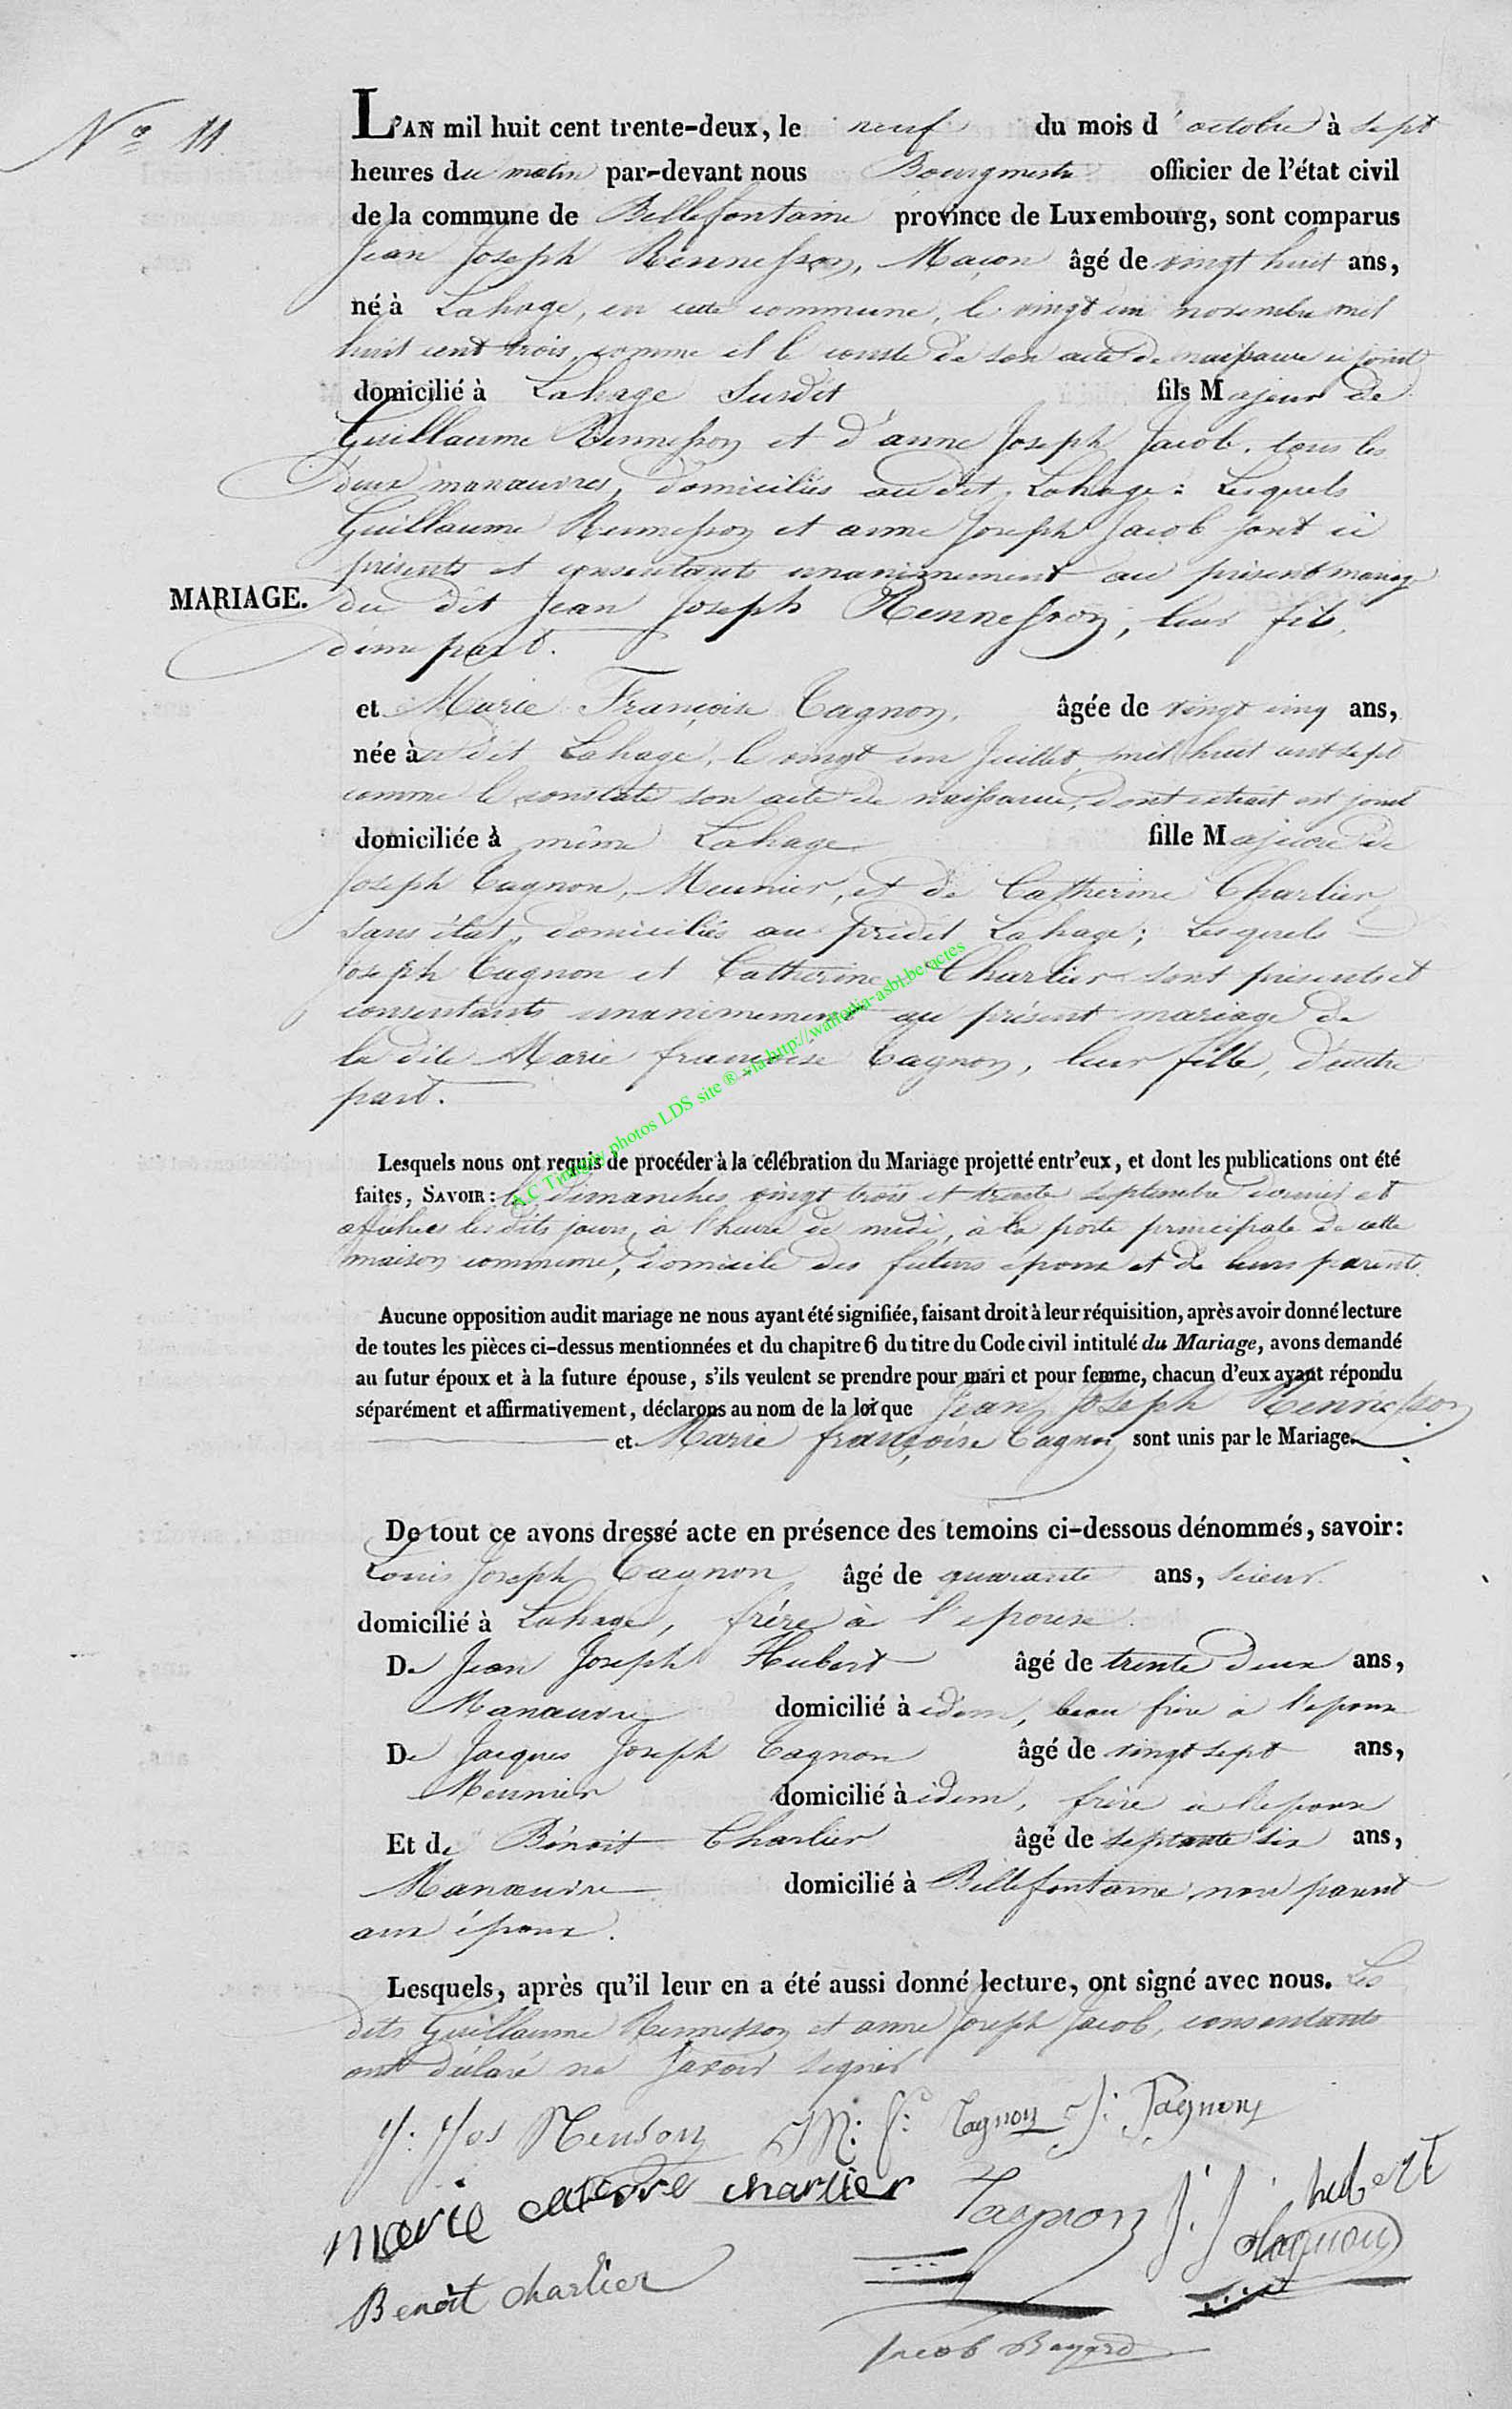 N° 11.
L'AN mil huit cent trente-deux, le neuf du mois d'octobre à sept
heures du matin par-devant nous Bourgmestre officier de l'état civil
de la commune de Bellefontaine province de Luxembourg, sont comparus
Jean Joseph Rennesson, Maçon âgé de vingt huit ans,
né à Lahage, en cette commune, le vingt un novembre mil
huit cent trois, comme il le conste de son acte de naissance ci joint
domicilié à Lahage Susdit fils Majeur de
Guillaume Rennesson et d'anne Joseph Jacob, tous les
deux manœuvres, domiciliés au dit Lahage: Lesquels
Guillaume Rennesson et anne Joseph Jacob sont ici
présents et consentants unanimement au présent mariage
MARIAGE.
du dit Jean Joseph Rennesson, leur fils,
d'une part.
et Marie Françoise Tagnon, âgée de vingt cinq ans,
née à dit Lahage, le vingt un Juillet mil huit cent sept
comme le constate son acte de naissance, dont extrait est joint
domiciliée à même Lahage fille Majeure de
Joseph Tagnon, Meunier, et de Catherine Charlier
sans état, domiciliés au prédit Lahage; Lesquels
Joseph Tagnon et Catherine Charlier sont présents et
consentants unanimement au présent mariage de
la dite Marie françoise Tagnon, leur fille, d'autre
part.
A.C Tintigny photos LDS site ® via http://wallonia-asbl.be/actes
Lesquels nous ont requis de procéder à la célébration du Mariage projetté entr'eux, et dont les publications ont été
faites, SAVOIR: les dimanches vingt trois et trente septembre dernier et
affichées les dits jours, à l'heure de midi, à la porte principale de cette
maison commune, domicile des futurs époux et de leurs parents.
Aucune opposition audit mariage ne nous ayant été signifiée, faisant droit à leur réquisition, après avoir donné lecture
de toutes les pièces ci-dessus mentionnées et du chapitre 6 du titre du Code civil intitulé du Mariage, avons demandé
au futur époux et à la future épouse, s'ils veulent se prendre pour mari et pour femme, chacun d'eux ayant répondu
séparément et affirmativement, déclarons au nom de la loi que Jean Joseph Rennesson
et Marie françoise Tagnon sont unis par le Mariage.
De tout ce avons dressé acte en présence des temoins ci-dessous dénommés, savoir:
Louis Joseph Tagnon âgé de quarante ans, scieur
domicilié à Lahage, frère à l'epouse.
De Jean Joseph Hubert âgé de trente deux ans,
Manœuvre domicilié à idem, beau frère à l'epoux
De Jacques Joseph Tagnon âgé de vingt sept ans,
Meunier domicilié à idem, frère à l'epouse
Et de Bénoit Charlier âgé de septante six ans,
Manœuvre domicilié à Bellefontaine, non parent
aux époux.
Lesquels, après qu'il leur en a été aussi donné lecture, ont signé avec nous. Les
dits Guillaume Rennesson et anne Joseph Jacob, consentants
ont déclaré ne savoir signer
J: Jos Renson M: f: Tagnon J: Tagnon
marie charlier Tagnon J. J. hubert
Tagnon
Benoit charlier
Jacob Bayard